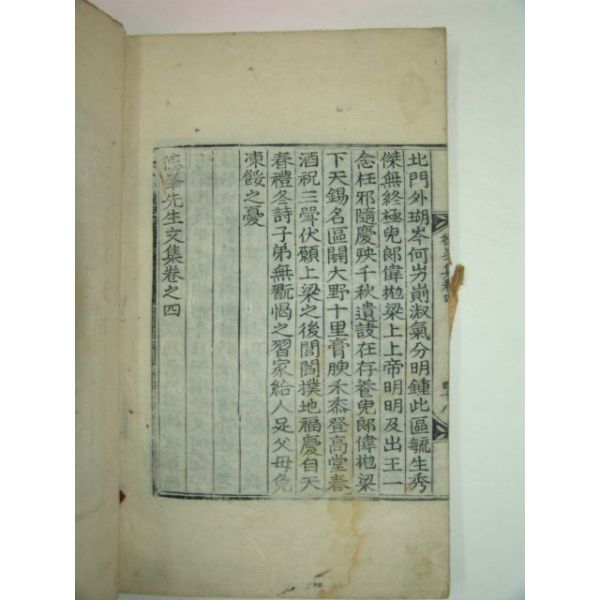 北門外瑚岑何屴崱淑氣分明鍾此區毓生秀
傑無終極兒郞偉拋梁上上帝明明及出王一
念枉邪隨慶殃千秋遺謨在存養兒郞偉拋梁
下天錫名區開大野十里膏腴禾黍登高堂春
酒祝三聲伏願上梁之後閭閻撲地福慶自天
春禮冬詩子弟無翫愒之習家給人足父母免
凍餒之憂
先生文集卷之四